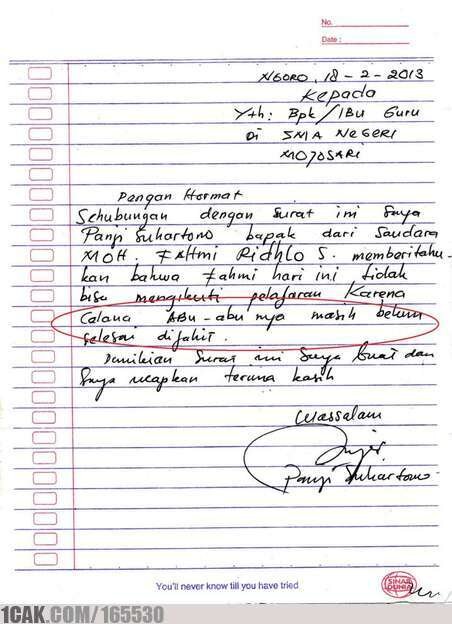 No.
Date :
NGORO, 18 - 2 - 2013
Kepada
Yth: Bpk/IBu Guru
Di SMA NEGERI
MOJOSARI
Dengan Hormat
Sehubungan dengan surat ini saya
Panji Suhartono bapak dari saudara
MOH. FAHmi RIDHLO S. memberitahu-
kan bahwa Fahmi hari ini tidak
bisa mengikuti pelajaran Karena
Celana ABu-abu nya masih belum
selesai dijahit.
Demikian surat ini saya buat dan
saya ucapkan terima kasih
Wassalam
Panji Suhartono
You'll never know till you have tried
SINAR DUNIA
1CAK.COM/165530